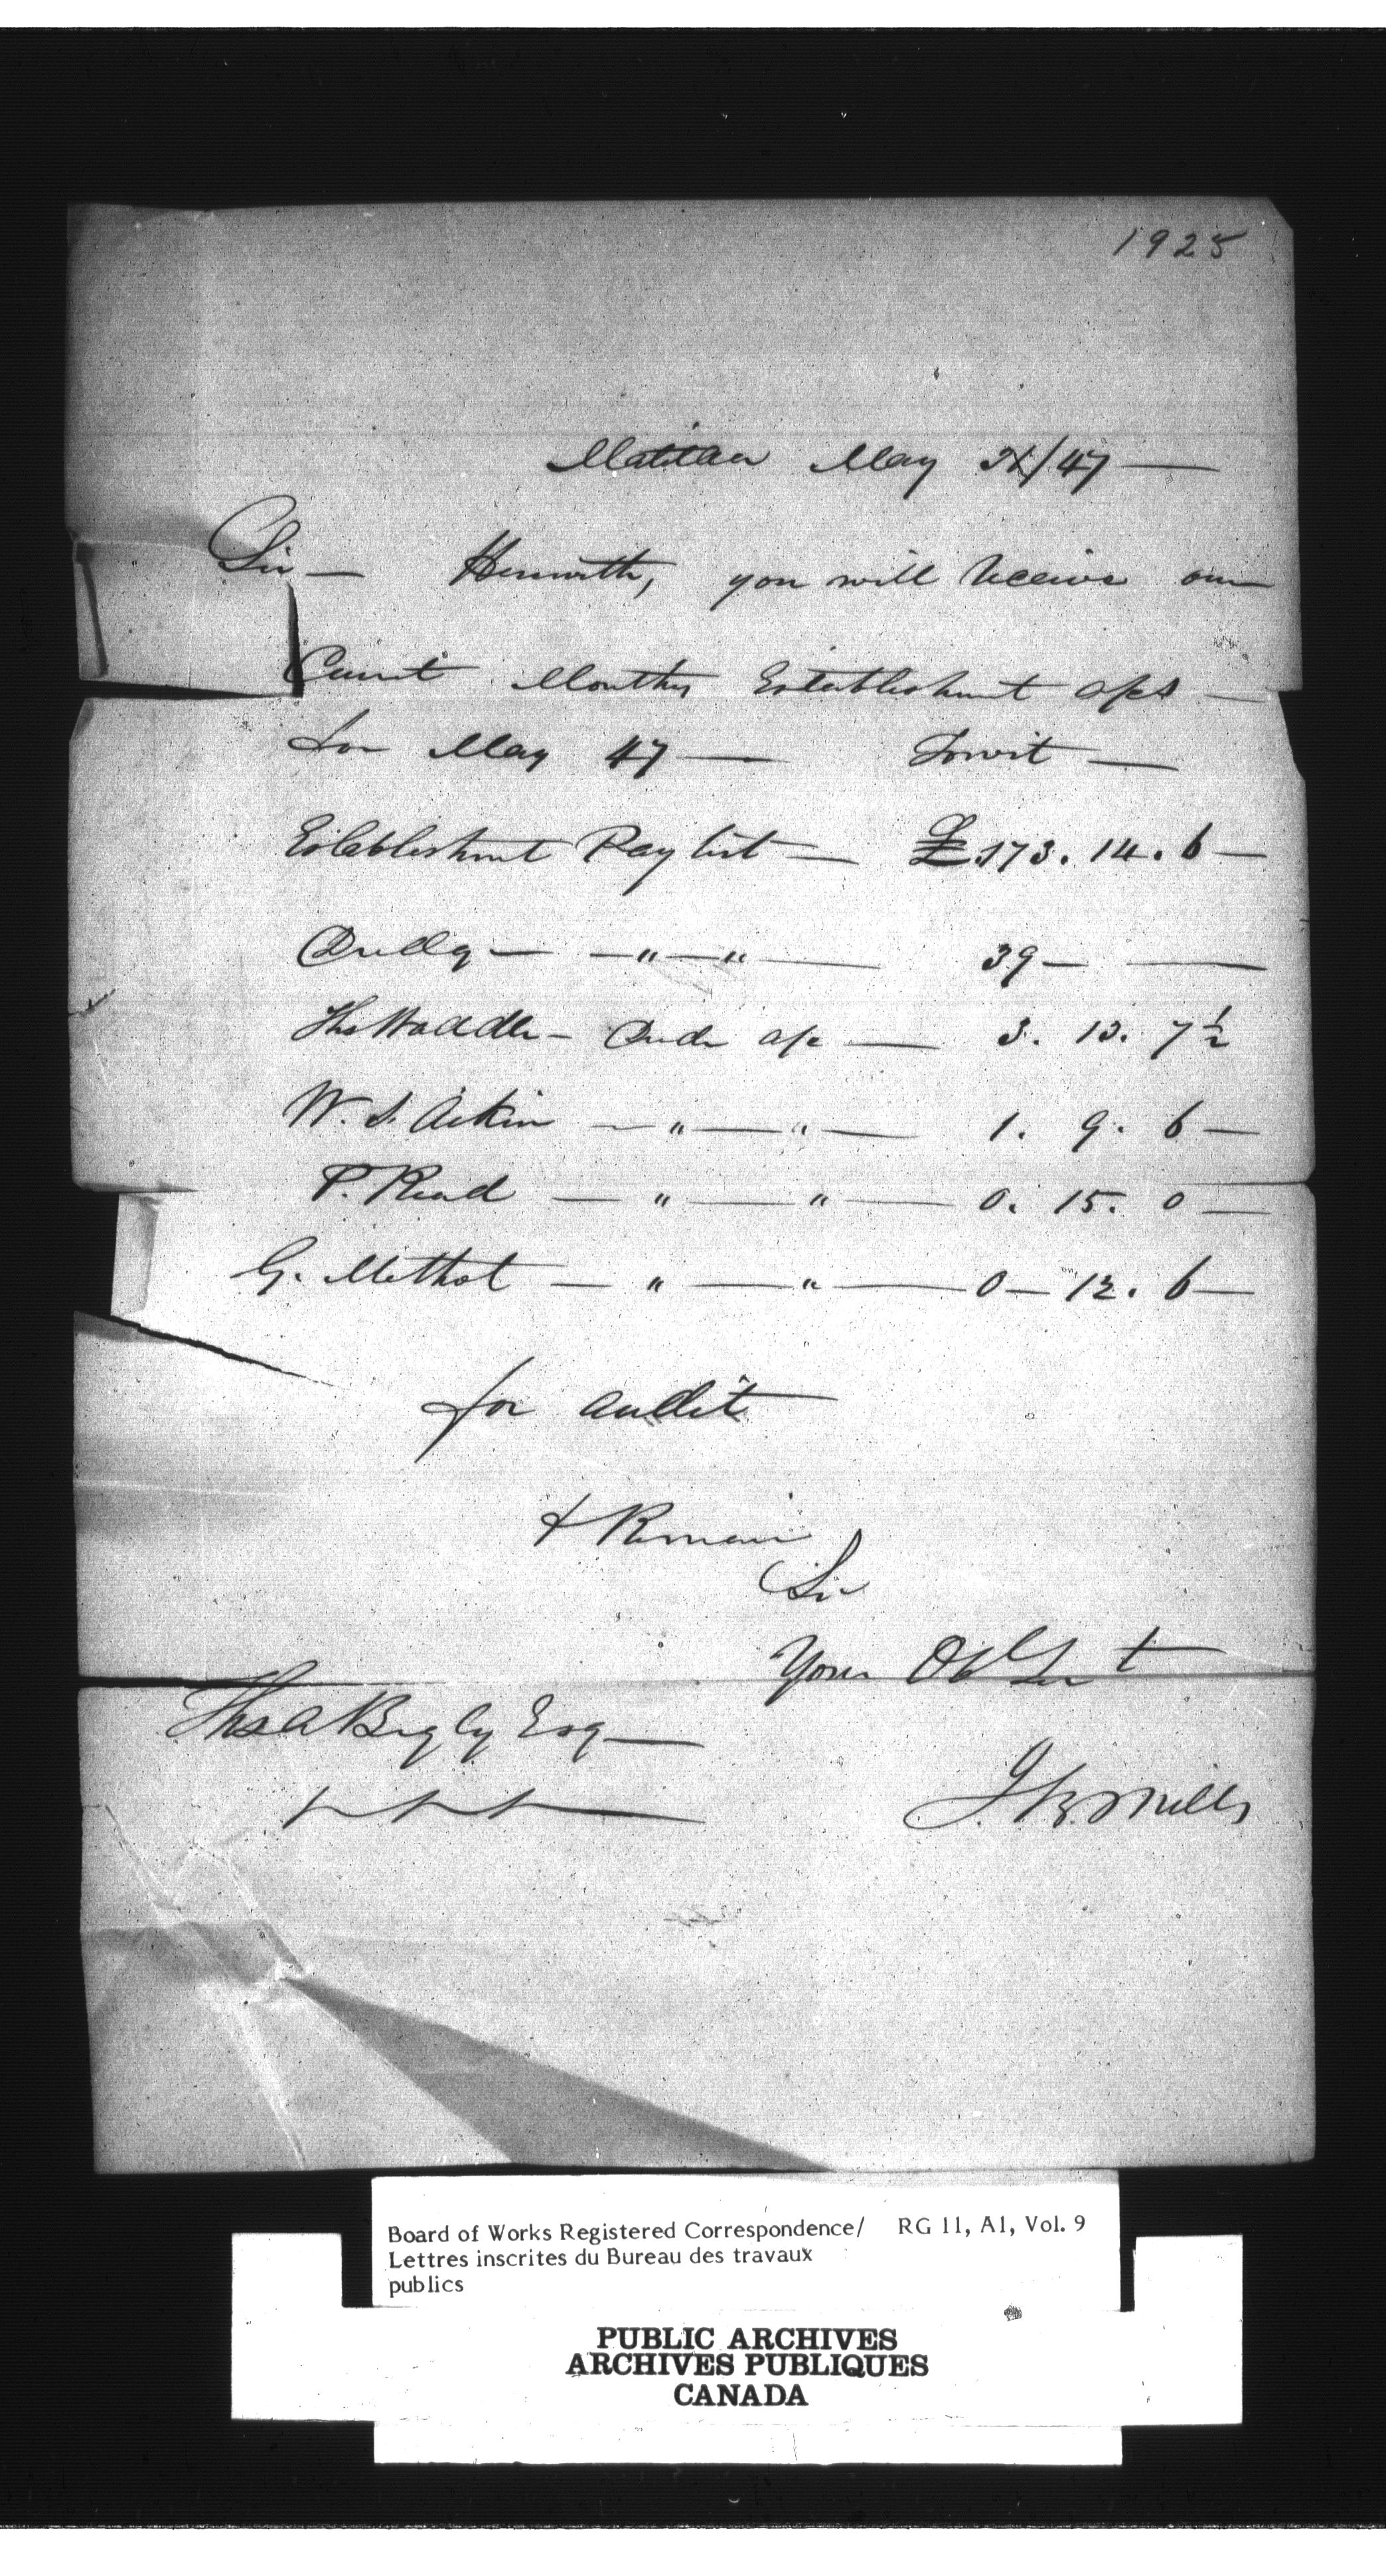 1925
May /47 —
Sir — Herewith, you will receive our
Current Months Establishment a/cs —
for May 47 — Towit —
Establishment Pay list — £173. 14. 6 —
— " — " — 39 — —
Thos Waddle — a/c — 3. 13. 7½
W. S. Aikin — " — " — 1. 9. 6 —
P. Read — " — " — 0. 15. 0 —
G. Methot — " — " — 0 — 12. 6 —
for audit
I Remain
Sir
Your Obt Sert
Thos A Begly Esq —
J. B. Mills
Board of Works Registered Correspondence/ RG 11, A1, Vol. 9
Lettres inscrites du Bureau des travaux
publics
PUBLIC ARCHIVES
ARCHIVES PUBLIQUES
CANADA